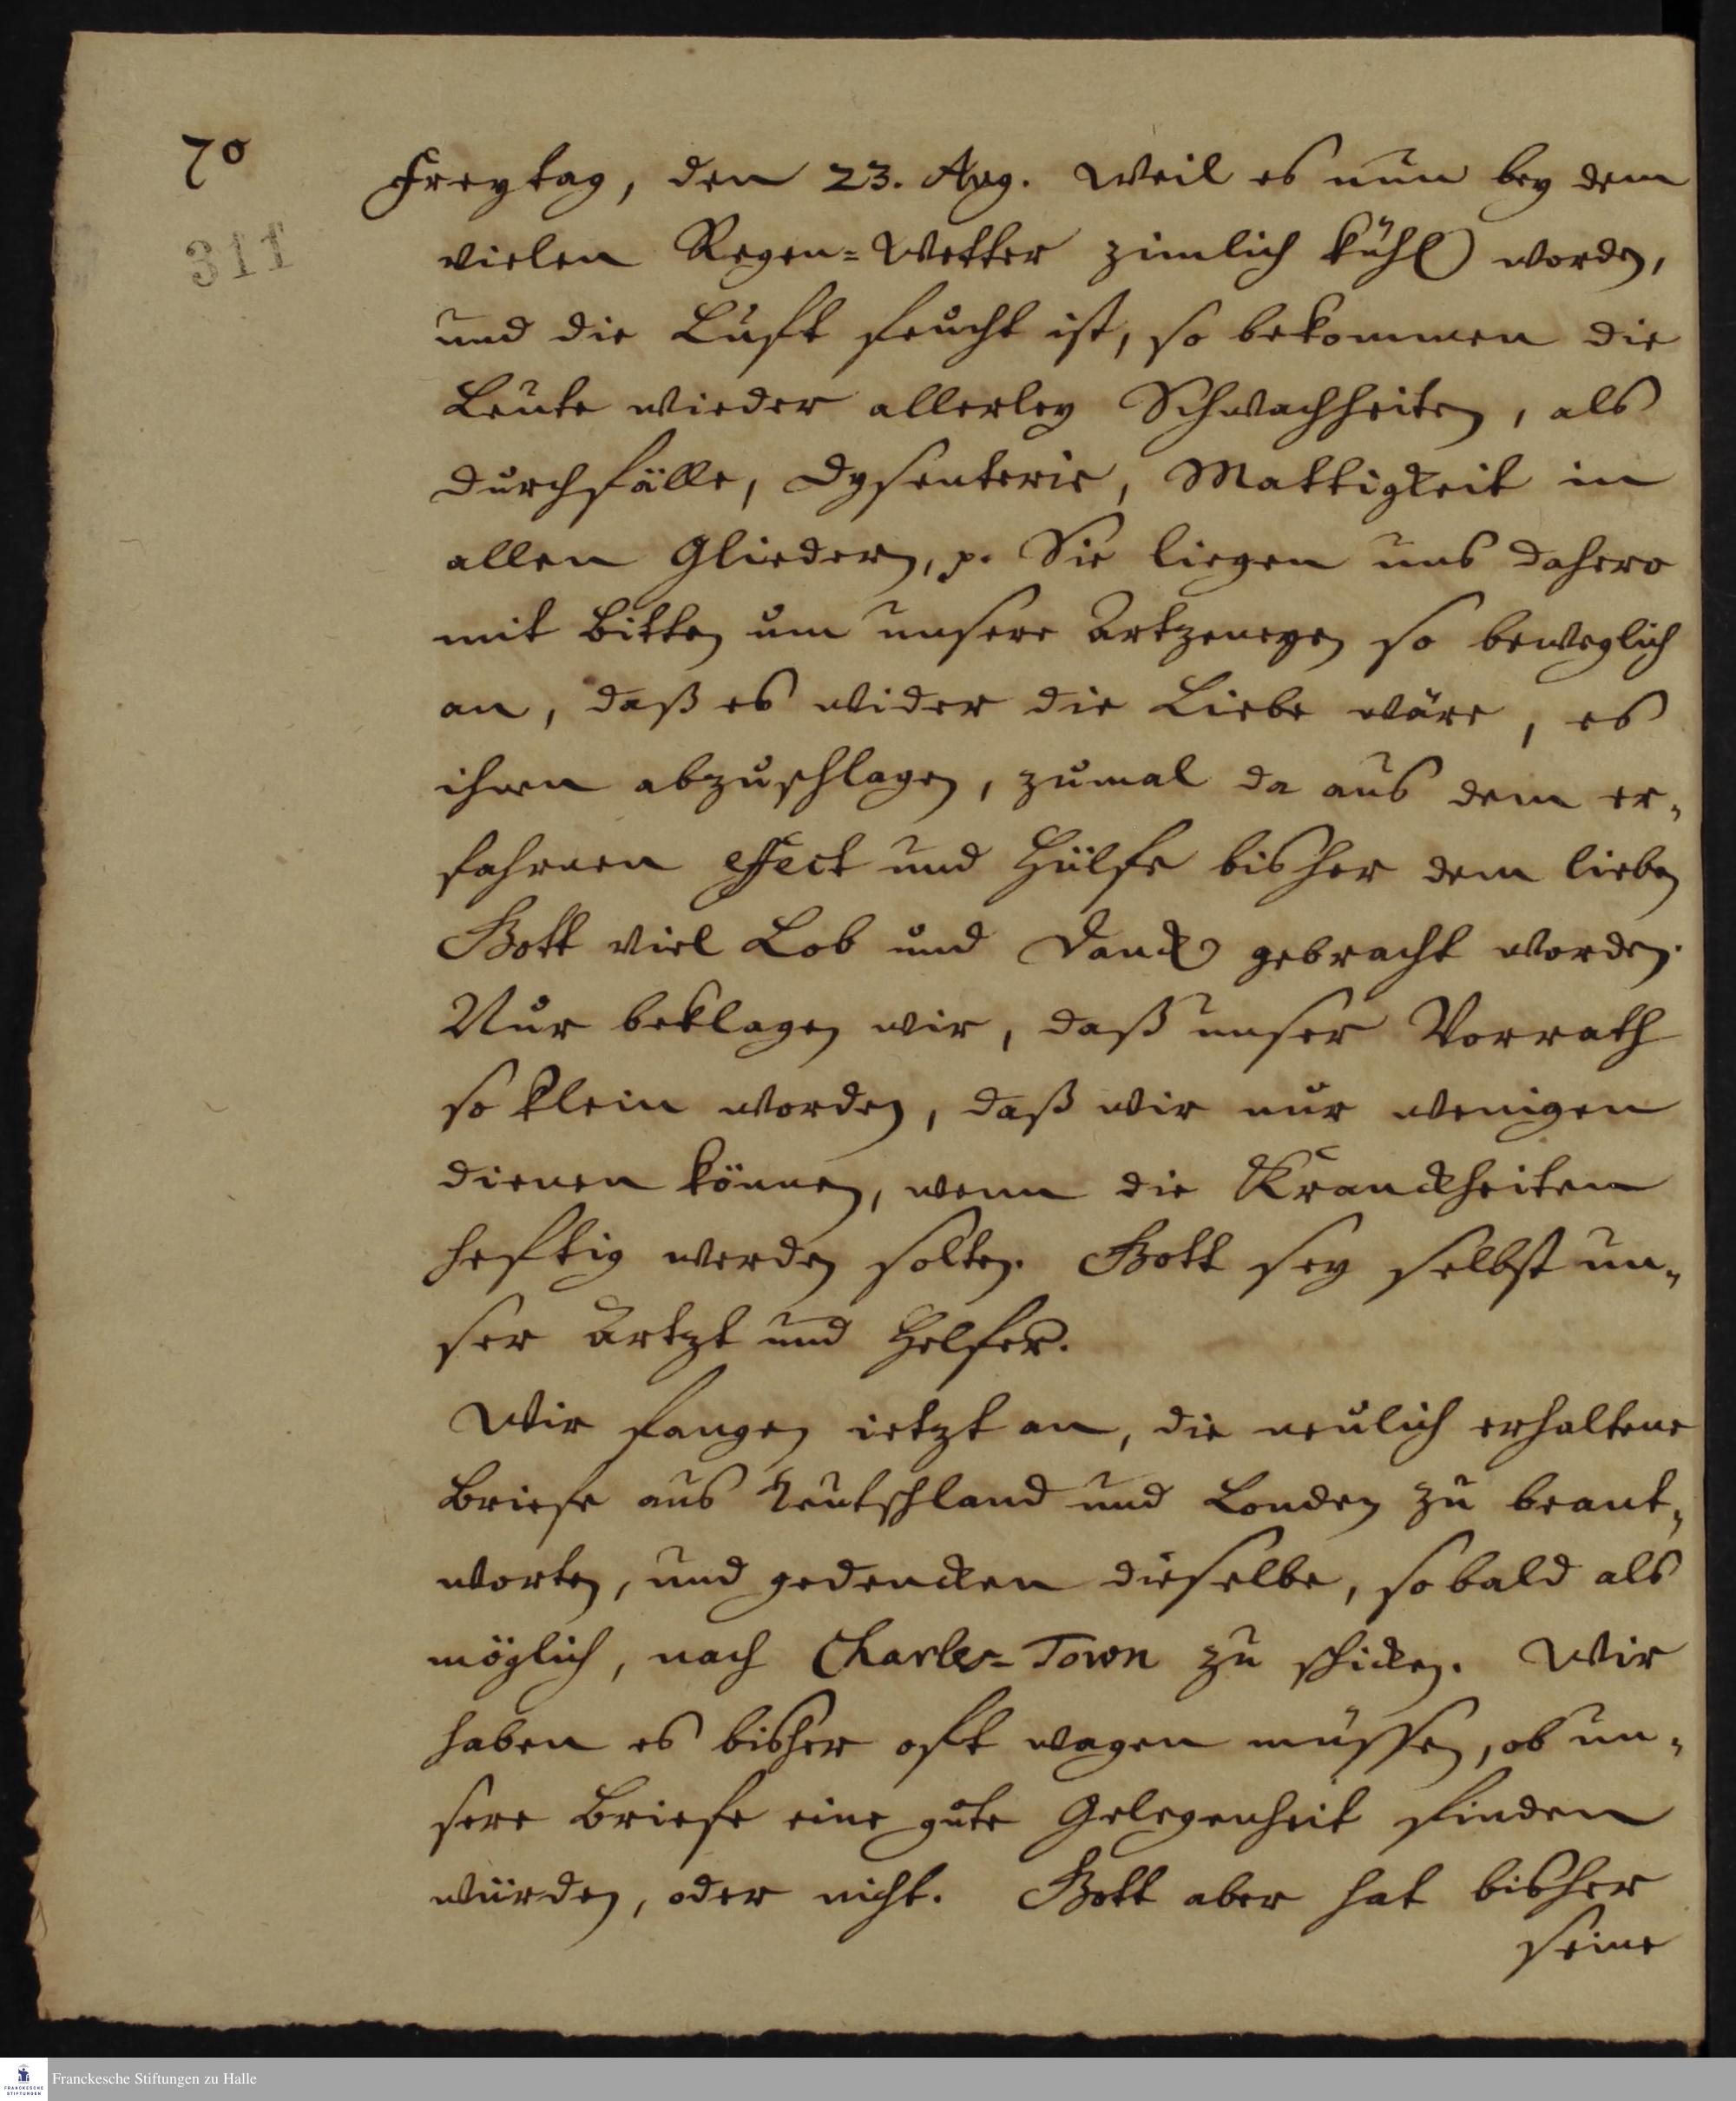 70
311
Freytag, den 23. Aug. Weil es nun bey dem
vielen Regen=Wetter zimlich kühl worden,
und die Luft feucht ist, so bekommen die
Leute wieder allerley Schwachheiten, als
Durchfälle, Dysenterie, Mattigkeit in
allen Gliedern, p. Sie liegen uns dahero
mit Bitten um unsere Artzeneyen so beweglich
an, daß es wider die Liebe wäre, es
ihnen abzuschlagen, zumal da aus dem er„
fahrnen effect und Hülfe bisher dem lieben
Gott viel Lob und Danck gebracht worden.
Nur beklagen wir, daß unser Vorrath
so klein worden, daß wir nur wenigen
dienen können, wenn die Kranckheiten
heftig werden solten. Gott sey selbst un„
ser Artzt und Helfer.
Wir fangen ietzt an, die neulich erhaltene
Briefe aus Teutschland und Londen zu beant„
worten, und gedencken dieselbe, so bald als
möglich, nach Charles=Town zu schicken. Wir
haben es bisher oft wagen müssen, ob un„
sere Briefe eine gute Gelegenheit finden
würden, oder nicht. Gott aber hat bisher
seine
Franckesche Stiftungen zu Halle
FRANCKESCHE
STIFTUNGEN